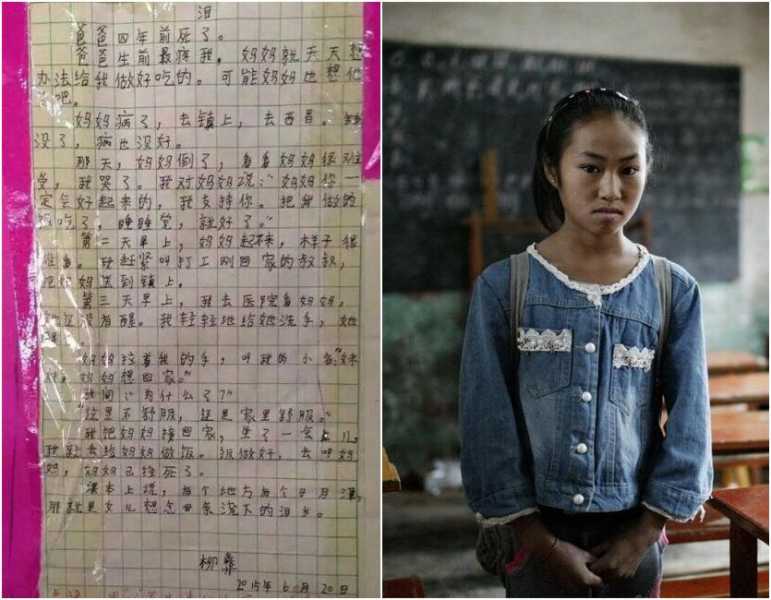 泪
爸爸四年前死了。
爸爸生前最疼我，妈妈就天天想
办法给我做好吃的。可能妈妈也想他
吧。
妈妈病了，去镇上，去西昌。钱
没了，病也没好。
那天，妈妈倒了，看看妈妈很难
受，我哭了。我对妈妈说：“妈妈你一
定会好起来的，我支持你。把我做的
饭吃了，睡睡觉，就好了。”
第二天早上，妈妈起不来，样子很
难受。我赶紧叫打工刚回家的叔叔，
把妈妈送到镇上。
第三天早上，我去医院看妈妈，
还没有醒。我轻轻地给她洗手，她
妈妈拉着我的手，叫我的小名“妹
妹，妈妈想回家。”
我问：“为什么了？”
“这里不舒服，还是家里舒服。”
我把妈妈接回家，坐了一会儿，
我就去给妈妈做饭。饭做好，去叫妈
妈，妈妈已经死了。
课本上说，有个地方有个日月潭，
那就是女儿想念母亲流下的泪水。
柳彝
2015年6月20日